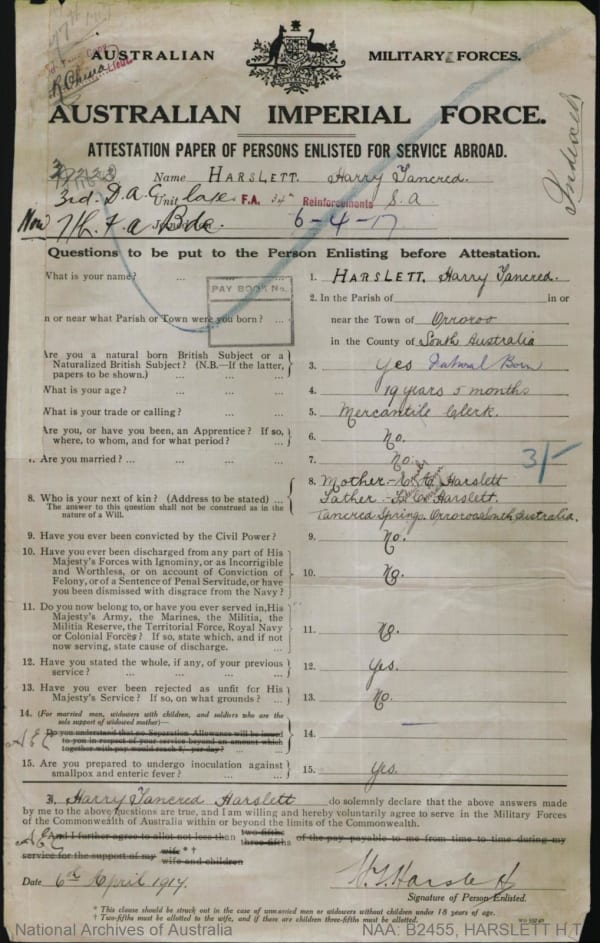 AUSTRALIAN MILITARY FORCES.
AUSTRALIAN IMPERIAL FORCE.
ATTESTATION PAPER OF PERSONS ENLISTED FOR SERVICE ABROAD.
Indexed
Name HARSLETT. Harry Tancred.
3rd. D.A.C Unit late F.A. Reinforcements S.A
Now 7th. F a Bde. 6-4-17
Questions to be put to the Person Enlisting before Attestation.
What is your name? ... ... ... 1. HARSLETT. Harry Tancred.
PAY BOOK No.
2. In the Parish of in or
n or near what Parish or Town were you born? ... near the Town of Orroroo
in the County of South Australia
Are you a natural born British Subject or a
Naturalized British Subject? (N.B.—If the latter,
papers to be shown.) ... ... 3. yes Natural Born
What is your age? ... ... 4. 19 years 5 months
What is your trade or calling? ... ... 5. Mercantile Clerk.
Are you, or have you been, an Apprentice? If so,
where, to whom, and for what period? ... 6. No.
Are you married? ... ... ... ... 7. No. 3/-
8. Who is your next of kin? (Address to be stated) ... 8. Mother - Harslett
The answer to this question shall not be construed as in the
nature of a Will. Father - Harslett.
Tancred Springs. Orroroo South Australia.
9. Have you ever been convicted by the Civil Power? 9. No.
10. Have you ever been discharged from any part of His
Majesty's Forces with Ignominy, or as Incorrigible
and Worthless, or on account of Conviction of
Felony, or of a Sentence of Penal Servitude, or have
you been dismissed with disgrace from the Navy? 10. No.
11. Do you now belong to, or have you ever served in, His
Majesty's Army, the Marines, the Militia, the
Militia Reserve, the Territorial Force, Royal Navy
or Colonial Forces? If so, state which, and if not
now serving, state cause of discharge. ... 11. No.
12. Have you stated the whole, if any, of your previous
service? ... ... ... ... 12. yes.
13. Have you ever been rejected as unfit for His
Majesty's Service? If so, on what grounds? ... 13. No.
14. (For married men, widowers with children, and soldiers who are the
sole support of widowed mother)—
Do you understand that no Separation Allowance will be issued
to you in respect of your service beyond an amount which
together with pay would reach 8/- per day? ... 14. —
15. Are you prepared to undergo inoculation against
smallpox and enteric fever? ... ... 15. yes.
I, Harry Tancred Harslett do solemnly declare that the above answers made
by me to the above questions are true, and I am willing and hereby voluntarily agree to serve in the Military Forces
of the Commonwealth of Australia within or beyond the limits of the Commonwealth.
And I further agree to allot not less than two-fifths three-fifths of the pay payable to me from time to time during my
service for the support of my wife * † wife and children
Date 6th April 1917. H.T. Harslett
Signature of Person Enlisted.
* This clause should be struck out in the case of unmarried men or widowers without children under 18 years of age.
† Two-fifths must be allotted to the wife, and if there are children three-fifths must be allotted.
National Archives of Australia NAA: B2455, HARSLETT H T